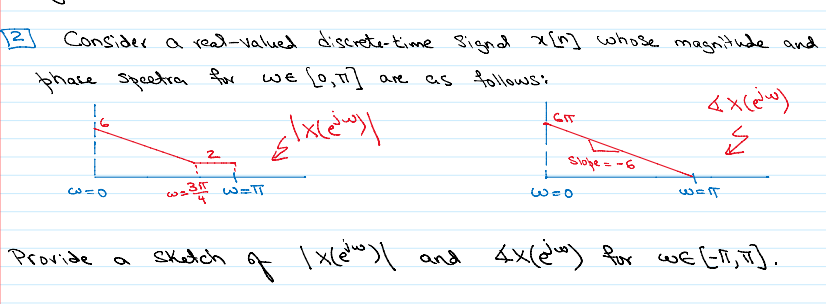 2 Consider a real-valued discrete-time signal x[n] whose magnitude and
phase spectra for ω∈[0,π] are as follows:
6
|X(e^{jω})|
2
ω=0
ω=3π/4
ω=π
∡X(e^{jω})
6π
slope = -6
ω=0
ω=π
Provide a sketch of |X(e^{jω})| and ∡X(e^{jω}) for ω∈[-π,π].